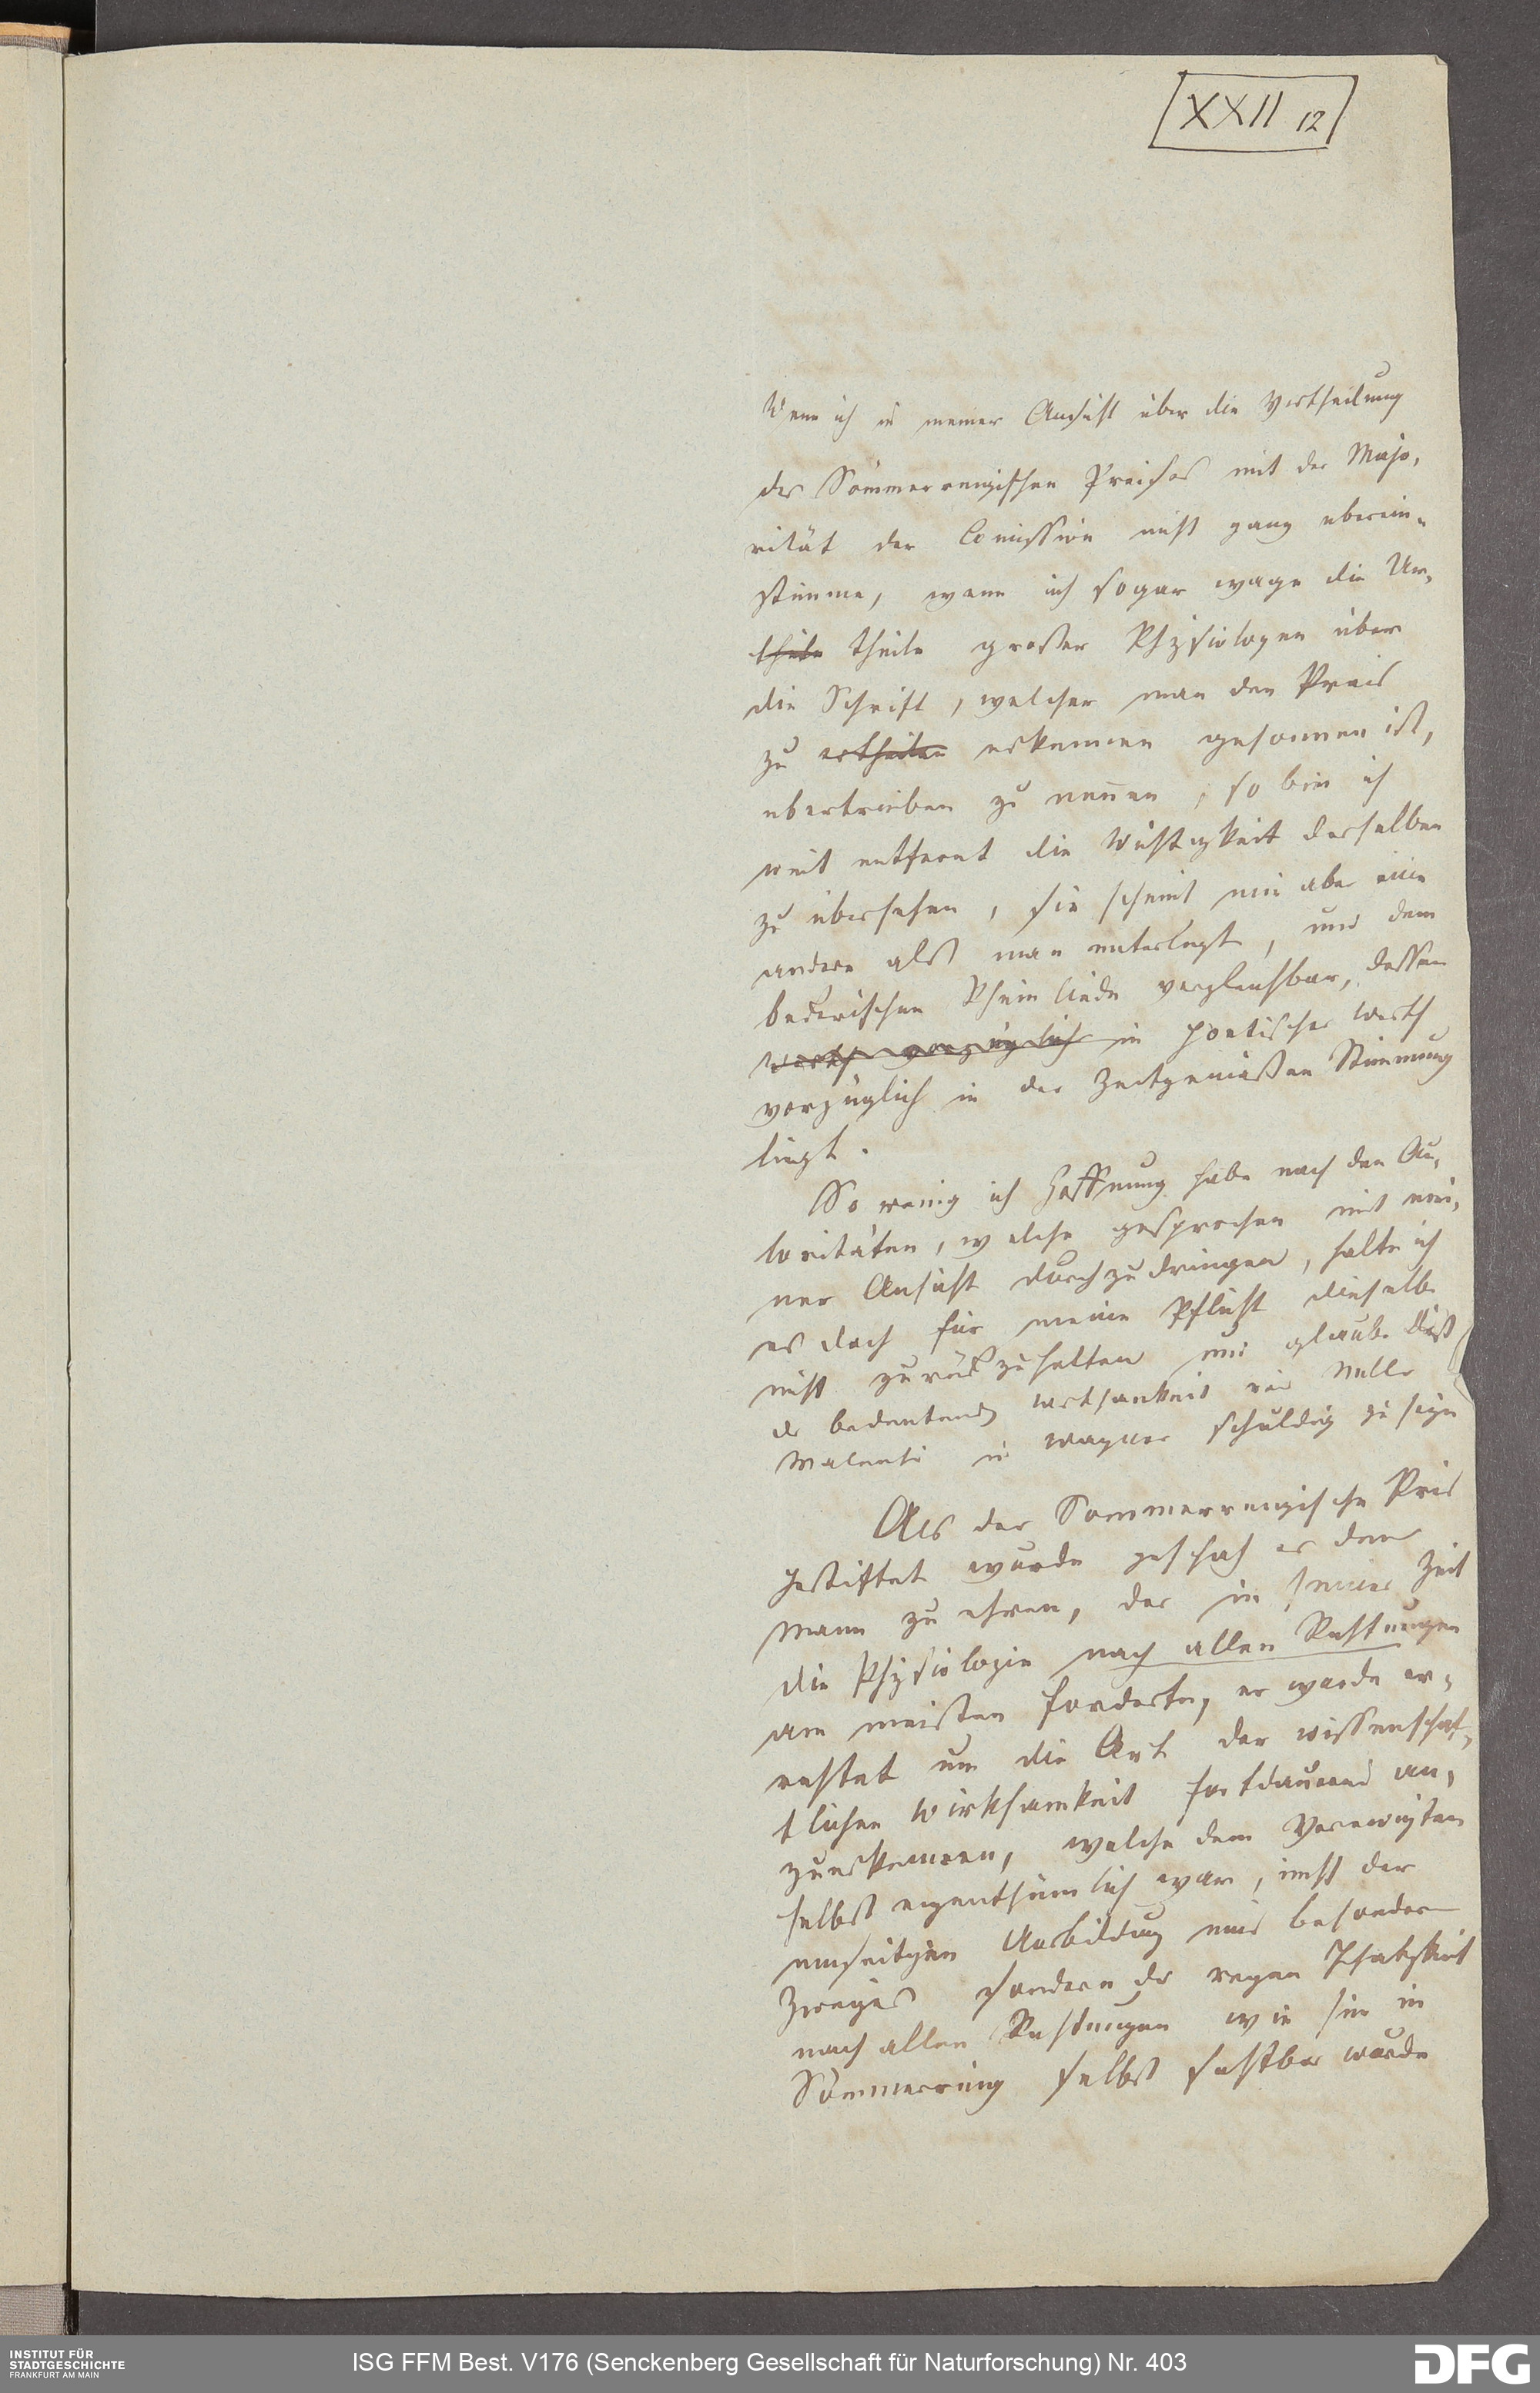 XXII 12
Wenn ich in meiner Ansicht über die Vertheilung
des Sömmerringischen Preises mit der Majo,
rität der Comission nicht ganz überein-
stimme, wenn ich sogar wage die Ur,
theile theile großer Physiologen über
die Schrift, welcher man den Preis
zu ertheilen erkennen gesonnen ist,
übertrieben zu nennen, so bin ich
weit entfernt die Wichtigkeit derselben
zu übersehen, sie scheint mir aber eine
andere als man unterlegt, und dem
beckerischen Rheinliede vergleichbar, dessen
Werth vorzüglich in poetischer Werth
vorzüglich in der Zeitgemäßen Stimmung
liegt.
So wenig ich Hoffnung habe nach den Au,
toritäten, welche gesprochen mit mei,
ner Ansicht durchzudringen, halte ich
es doch für meine Pflicht dieselbe
nicht zurückzuhalten und glaube dieß
der bedeutend Wirksamkeit wie
Valenti u Wagner schuldig zu seyn
Als der Sömmerringische Preis
gestiftet wurde geschah es den
Mann zu ehren, der in seiner Zeit
die Physiologie nach allen Richtungen
am meisten forderte, er wurde er,
richtet um die Art der wissenschaf,
tlichen Wirksamkeit fortdauernd an,
zuerkennen, welche dem Verewigten
selbst eigenthümlich war, nicht der
einseitigen Ausbildung eines besondern
Zweiges sondern der regen Thätigkeit
nach allen Richtungen wie sie in
Sömmerring selbst sichtbar wurde
INSTITUT FÜR
STADTGESCHICHTE
FRANKFURT AM MAIN
ISG FFM Best. V176 (Senckenberg Gesellschaft für Naturforschung) Nr. 403
DFG